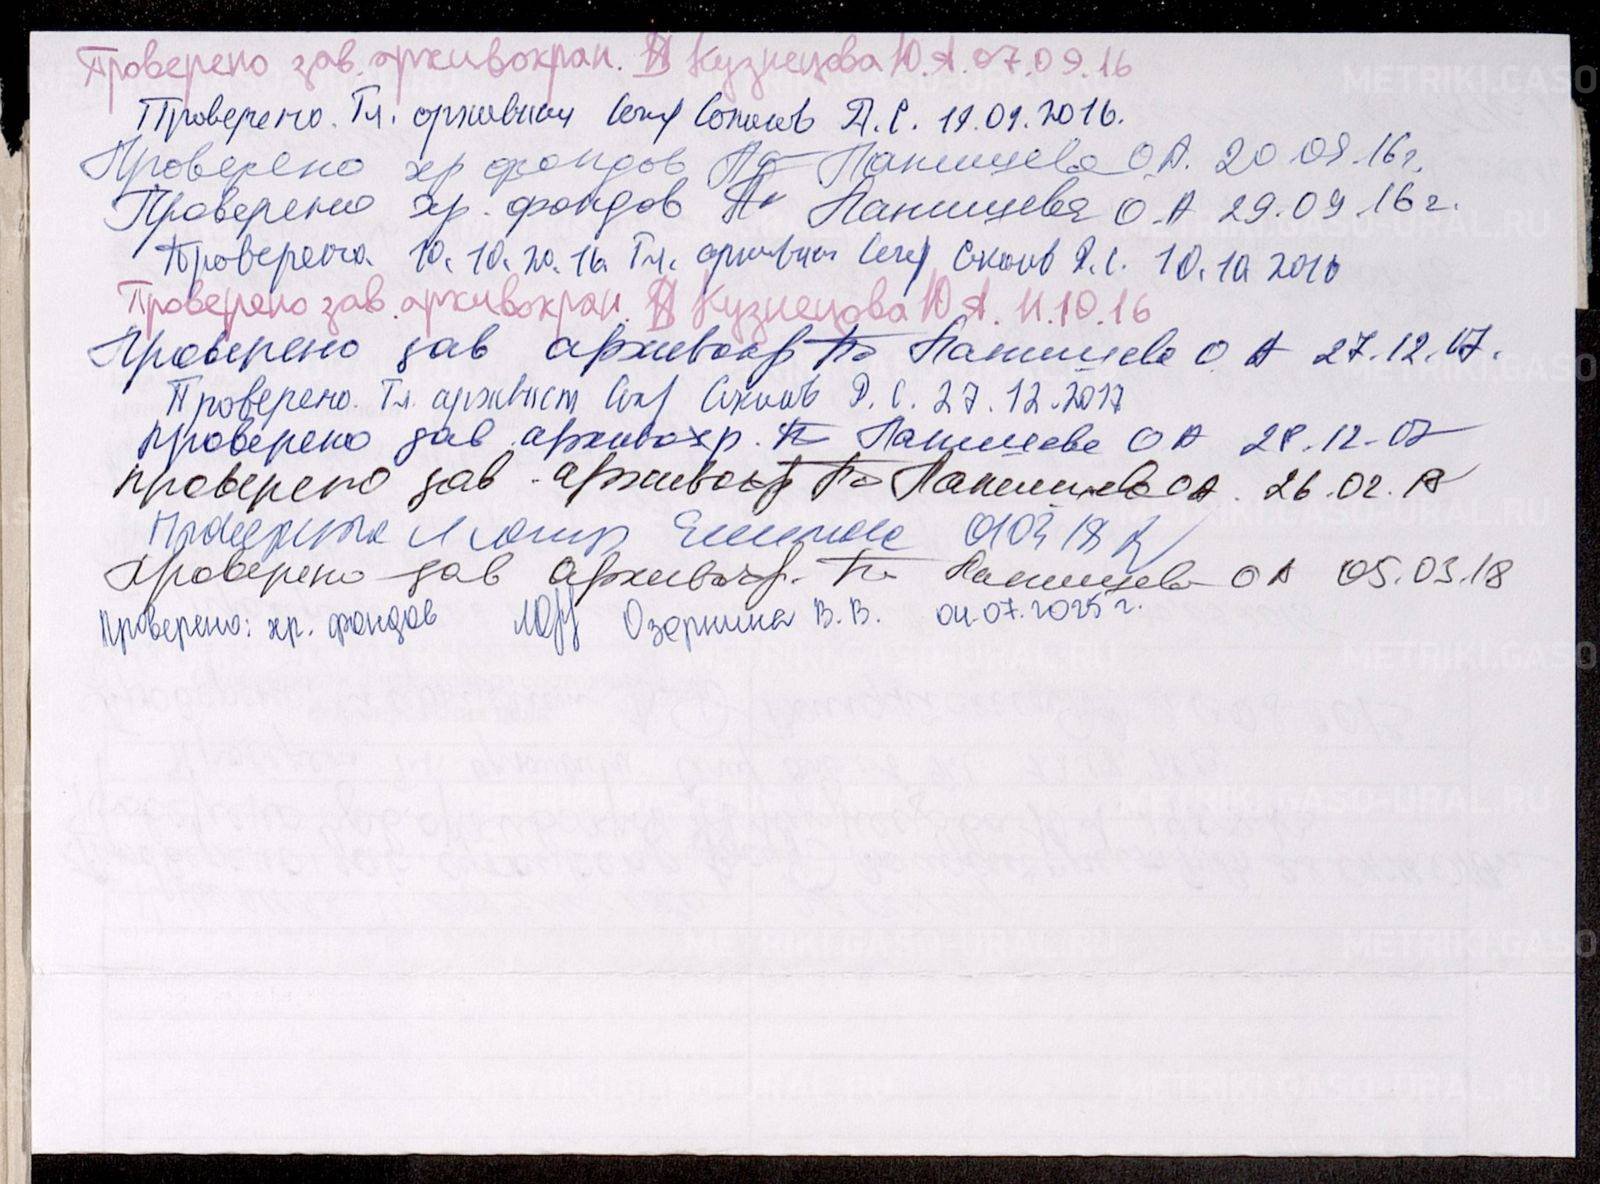 Проверено зав. архивохран. Кузнецова Ю.А. 07.09.16
Проверено. Гл. архивист Соколов Д.С. 19.09.2016.
Проверено хр фондов Паницева О.А. 20.09.16г.
Проверено хр. фондов Паницева О.А 29.09.16г.
Проверено. 10.10.2016 Гл. архивист Соколов Д.С. 10.10 2016
Проверено зав. архивохран. Кузнецова Ю.А. 11.10.16
Проверено зав архивохр Паницева О А 27.12.17.
Проверено. Гл. архивист Соколов Д.С. 27.12.2017
Проверено зав архивохр. Паницева О А 28.12
проверено зав архивохр Паницева ОА. 26.02.
Проверено зав архивохр. Паницева ОА 05.03.18
Проверено: хр. фондов Озернина В.В. 04.07.2025 г.
METRIKI.GASO-URAL.RU